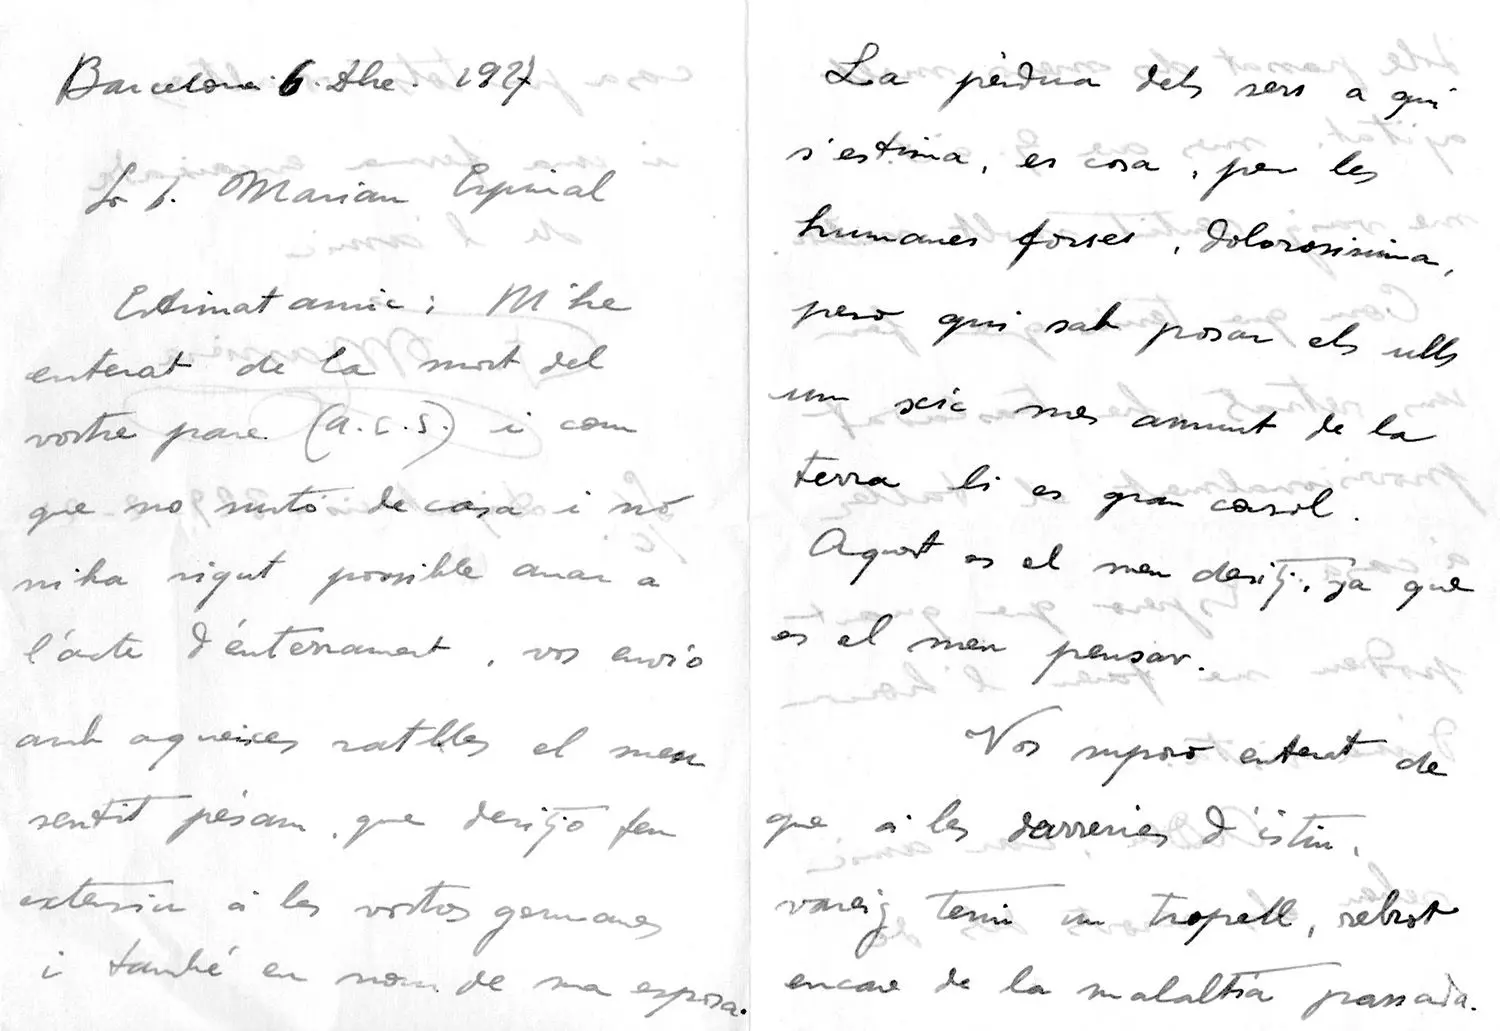 Barcelona 6. Dbre. 1927
Sr D. Marian Espinal
Estimat amic: M'he
enterat de la mort del
vostre pare (a.c.s.) i com
que no surto de casa i no
m'ha sigut possible anar a
l'acte d'enterrament, vos envio
amb aqueixes ratlles el meu
sentit pésam, que desitjo feu
extensiu á les vostres germanes
i també en nom de ma esposa.
La pèrdua dels sers a qui
s'estima, es cosa, per les
humanes forses, dolorosisima,
pero qui sab posar els ulls
un xic mes amunt de la
terra li es gran consol.
Aquest es el meu desitj, ja que
es el meu pensar.
Vos suposo enterat de
que á les darreries d'istiu,
vareig tenir un tropell, rebrot
encare de la malaltia passada.